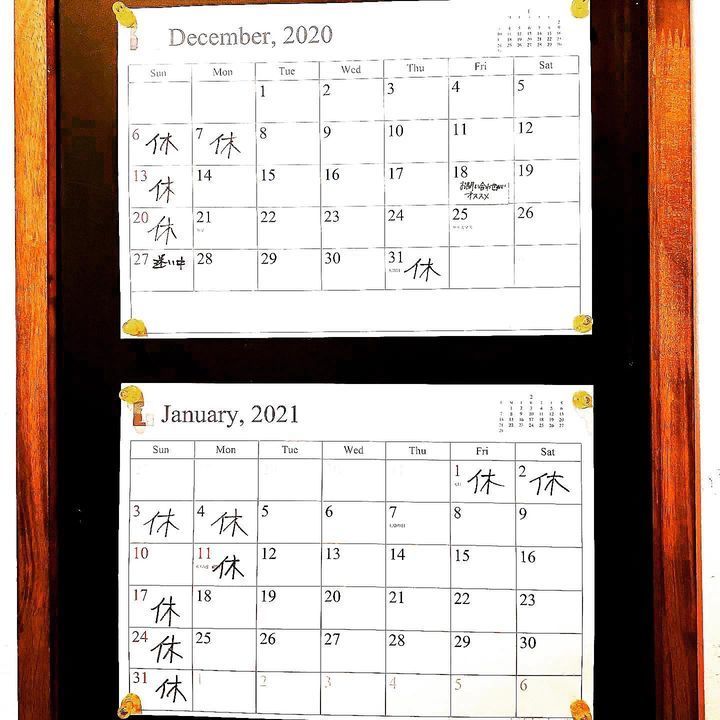 December, 2020
Sun Mon Tue Wed Thu Fri Sat
1 2 3 4 5
6 休 7 休 8 9 10 11 12
13 休 14 15 16 17 18 19
オススメ
20 休 21 22 23 24 25 26
27 28 29 30 31 休
January, 2021
Sun Mon Tue Wed Thu Fri Sat
1 休 2 休
3 休 4 休 5 6 7 8 9
10 11 休 12 13 14 15 16
17 休 18 19 20 21 22 23
24 休 25 26 27 28 29 30
31 休 1 2 3 4 5 6